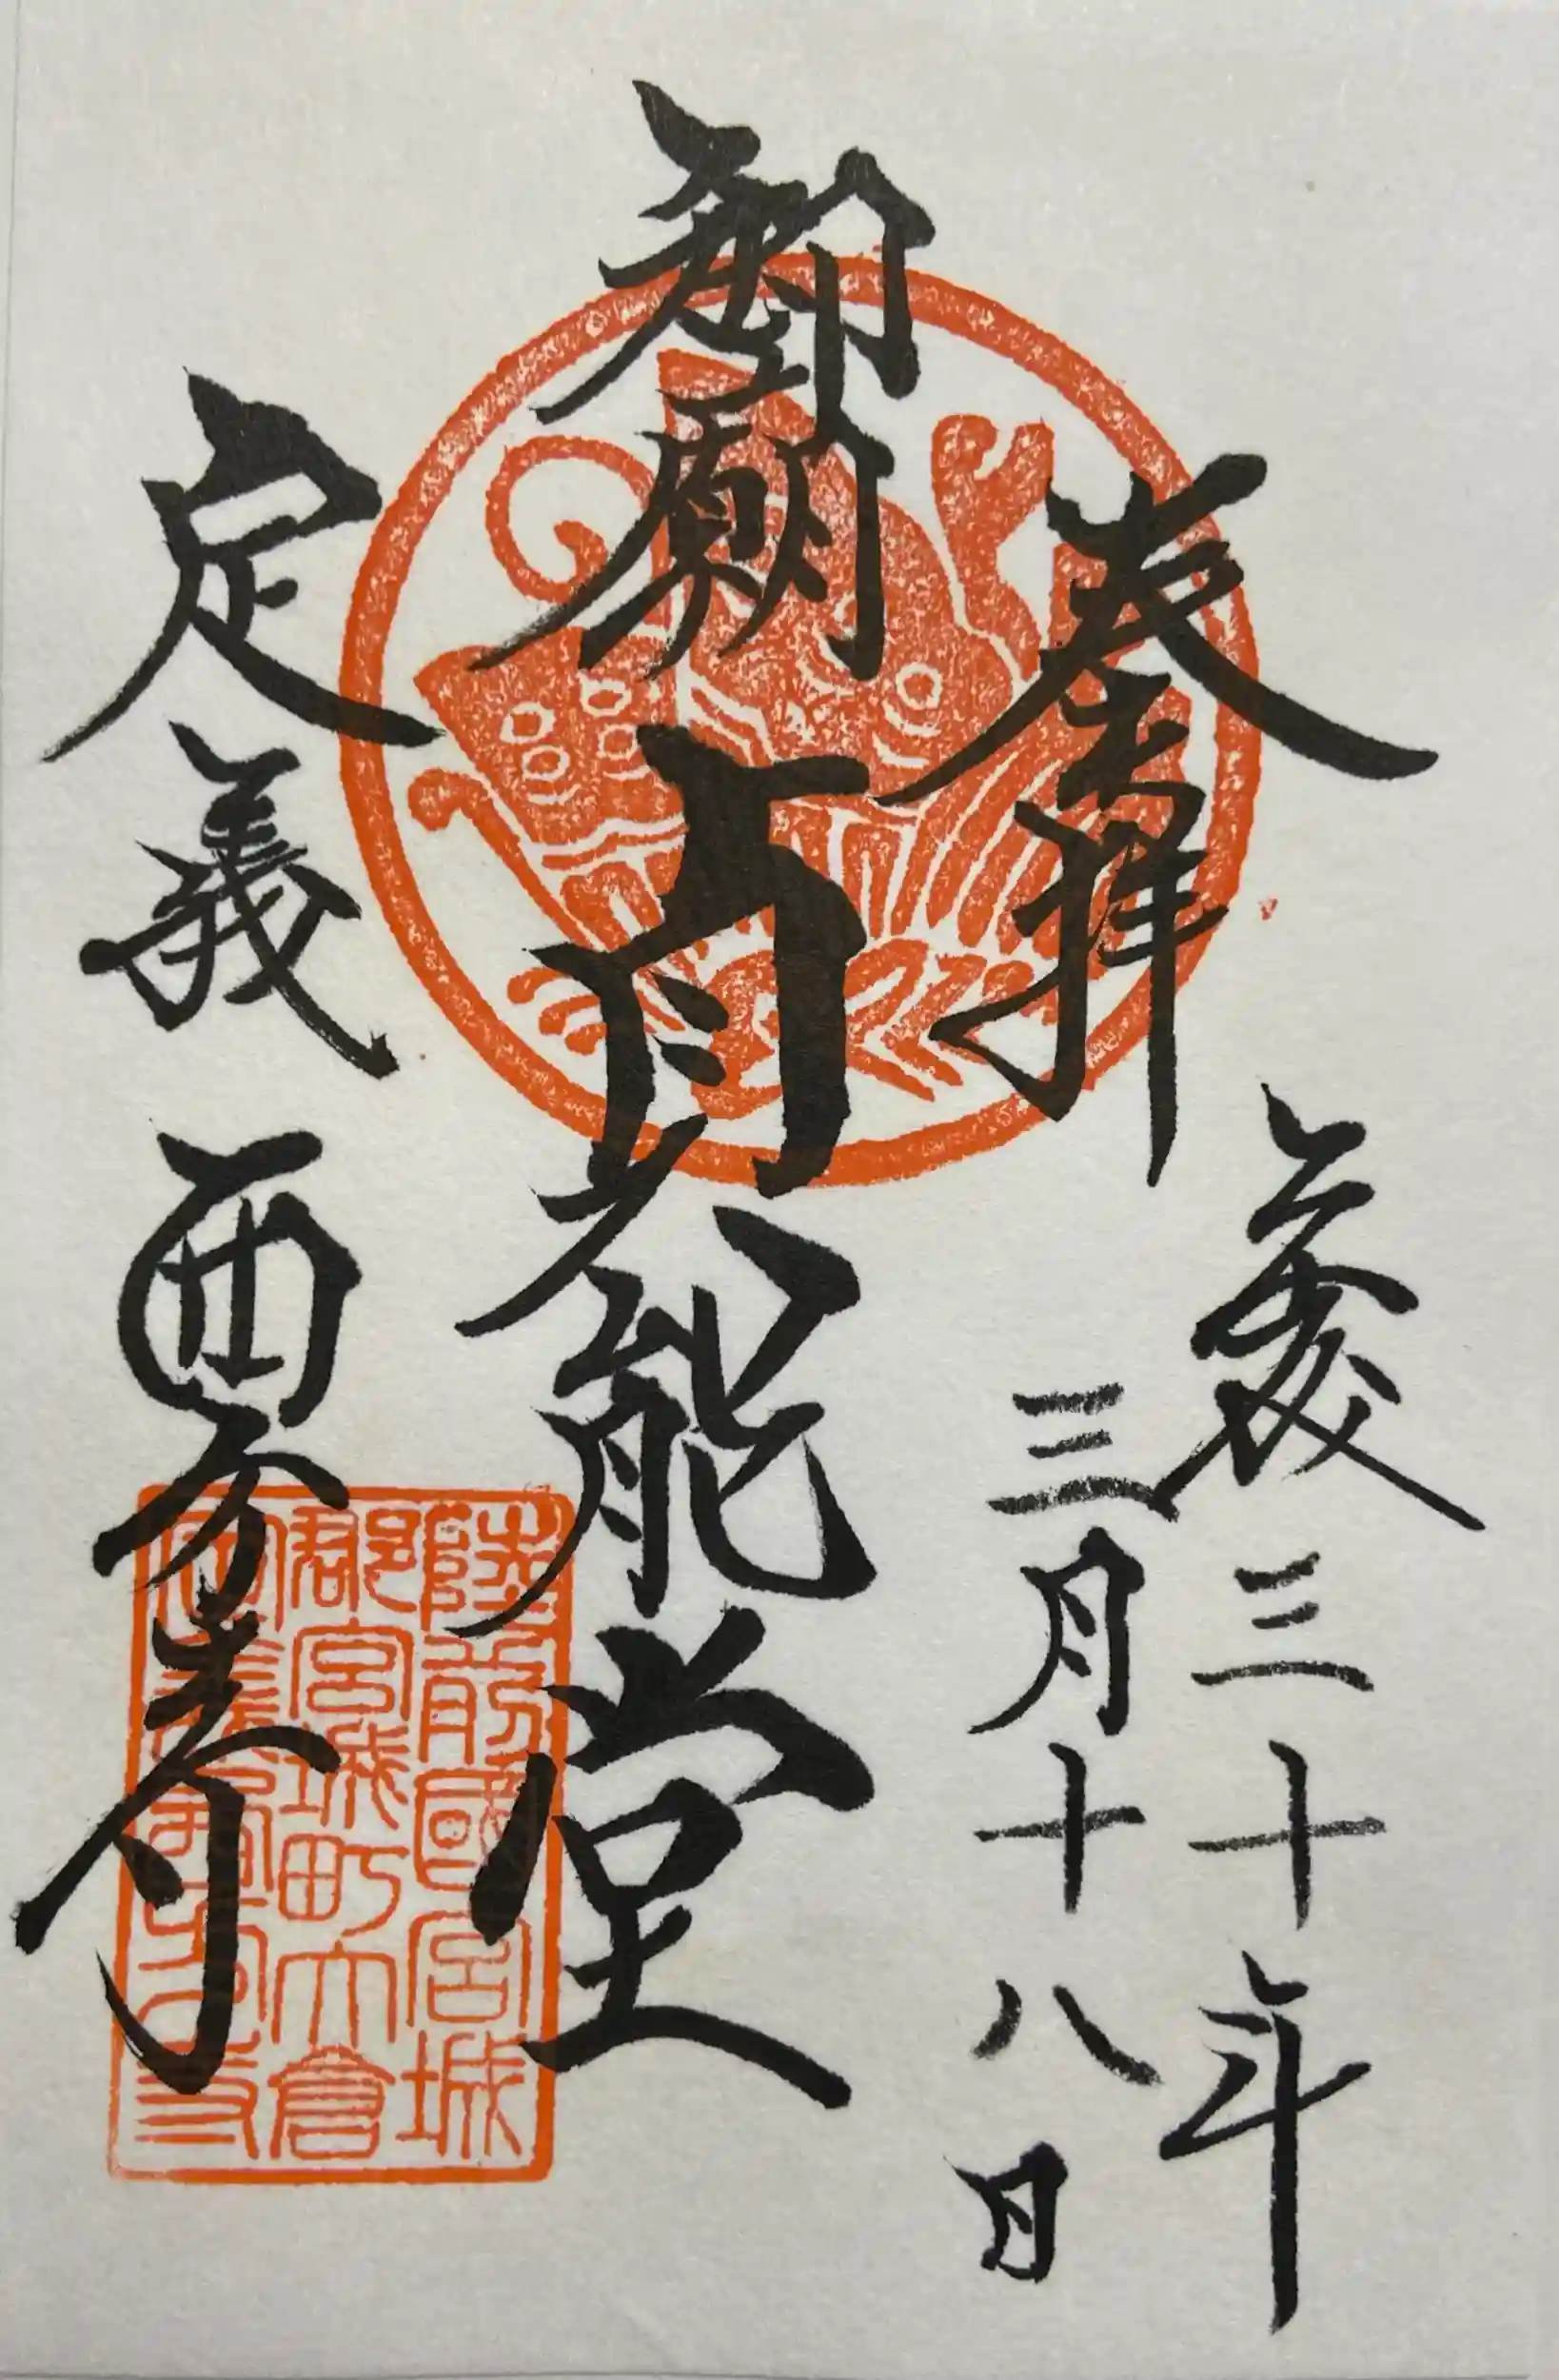 奉拝
平成三十年
三月十八日
御廟貞能堂
定義 西方寺
陸前國宮城
郡宮城町大倉